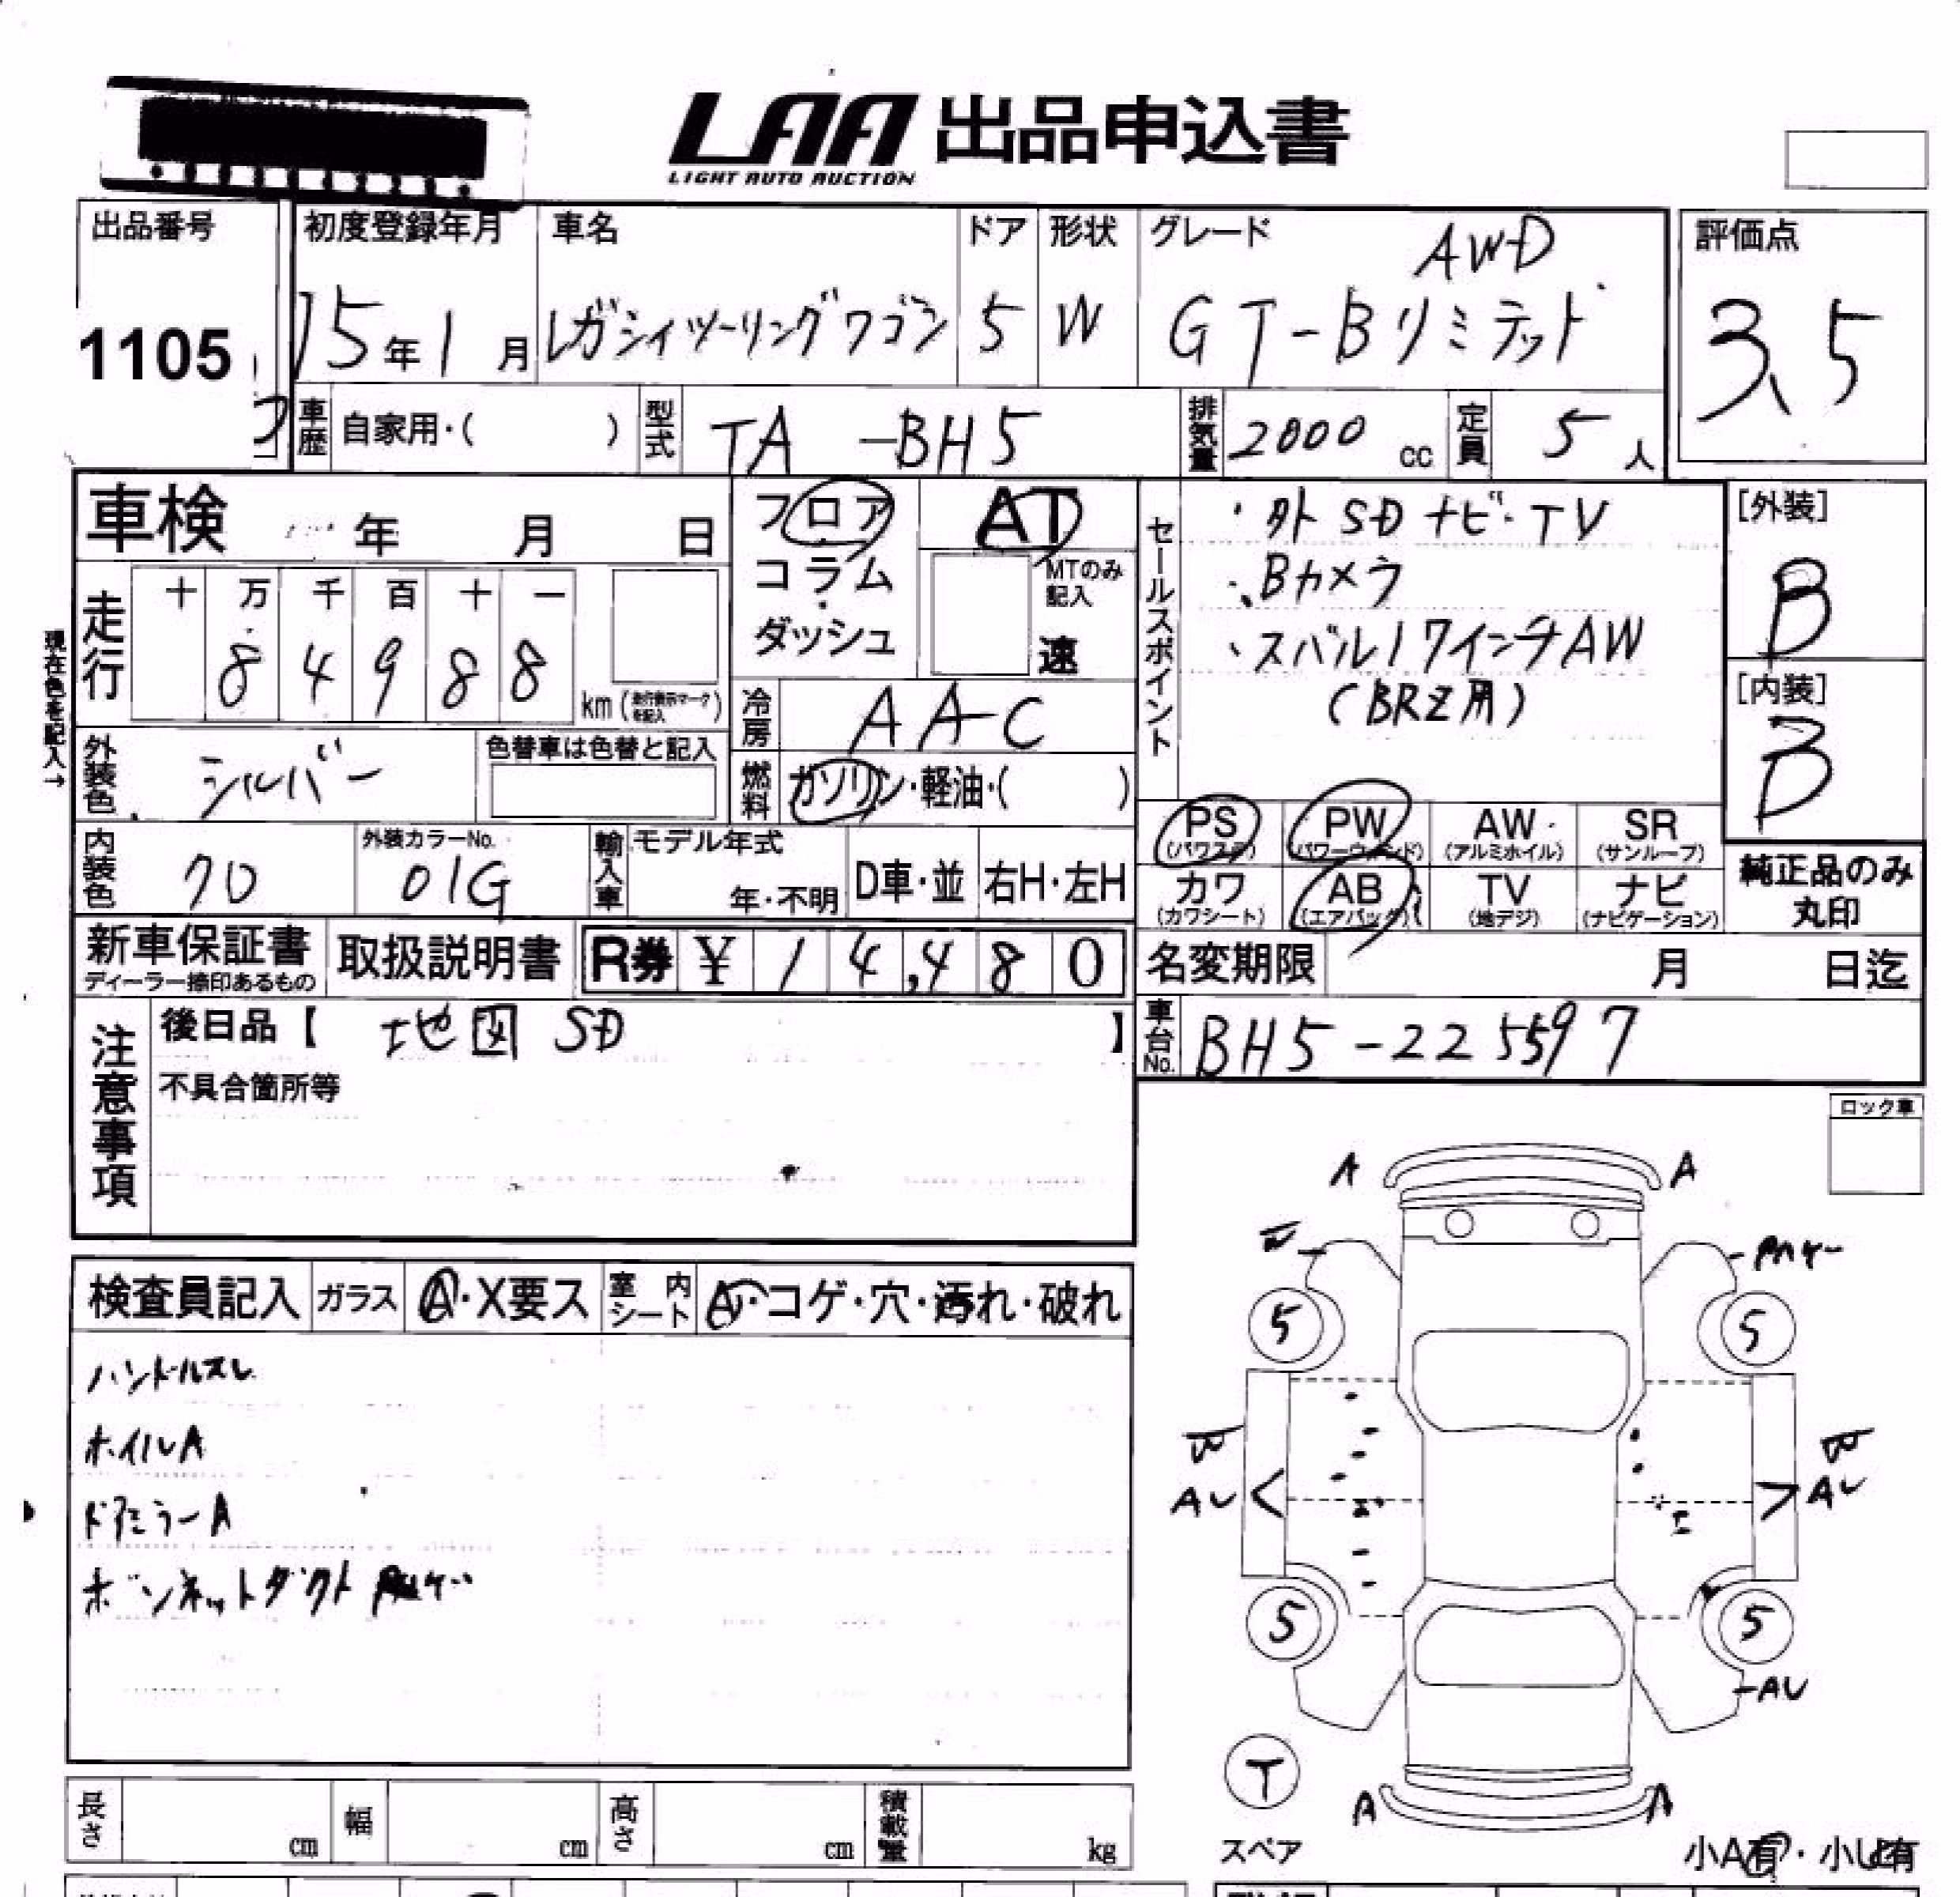 LAA 出品申込書
LIGHT AUTO AUCTION
出品番号 初度登録年月 車名 ドア 形状 グレード 評価点
AWD
1105 15年1月 レガシィツーリングワゴン 5 W GT-Bリミテッド 3.5
車歴 自家用・( ) 型式 TA-BH5 排気量 2000 cc 定員 5人
車検 年 月 日 フロア AT セールスポイント ・外SDナビ・TV [外装]
コラム MTのみ記入 ・Bカメラ B
走行 十 万 千 百 十 一 ダッシュ 速 ・スバル17インチAW
84988 km (走行表示マークを記入) (BRZ用) [内装]
現在色を記入→ 冷房 AAC B
外装色 シルバー 色替車は色替と記入 燃料 ガソリン・軽油・( )
PS (パワステ) PW (パワーウィンド) AW (アルミホイル) SR (サンルーフ)
内装色 クロ 外装カラーNo. 01G 輸入車 モデル年式 年・不明 D車・並 右H・左H
カワ (カワシート) AB (エアバッグ) TV (地デジ) ナビ (ナビゲーション) 純正品のみ丸印
新車保証書 ディーラー捺印あるもの 取扱説明書 R券 ¥ 14,480 名変期限 月 日迄
注意事項 後日品【 地図SD 】 車台No. BH5-225597
不具合箇所等
ロック車
検査員記入 ガラス A・X要ス 室内シート A・コゲ・穴・汚れ・破れ
ハンドルスレ
ホイルA
ドアミラーA
ボンネットダクト
A A
5 5
AU AU
5 5
AU
T
スペア
A A
小A有・小U有
長さ cm 幅 cm 高さ cm 積載量 kg